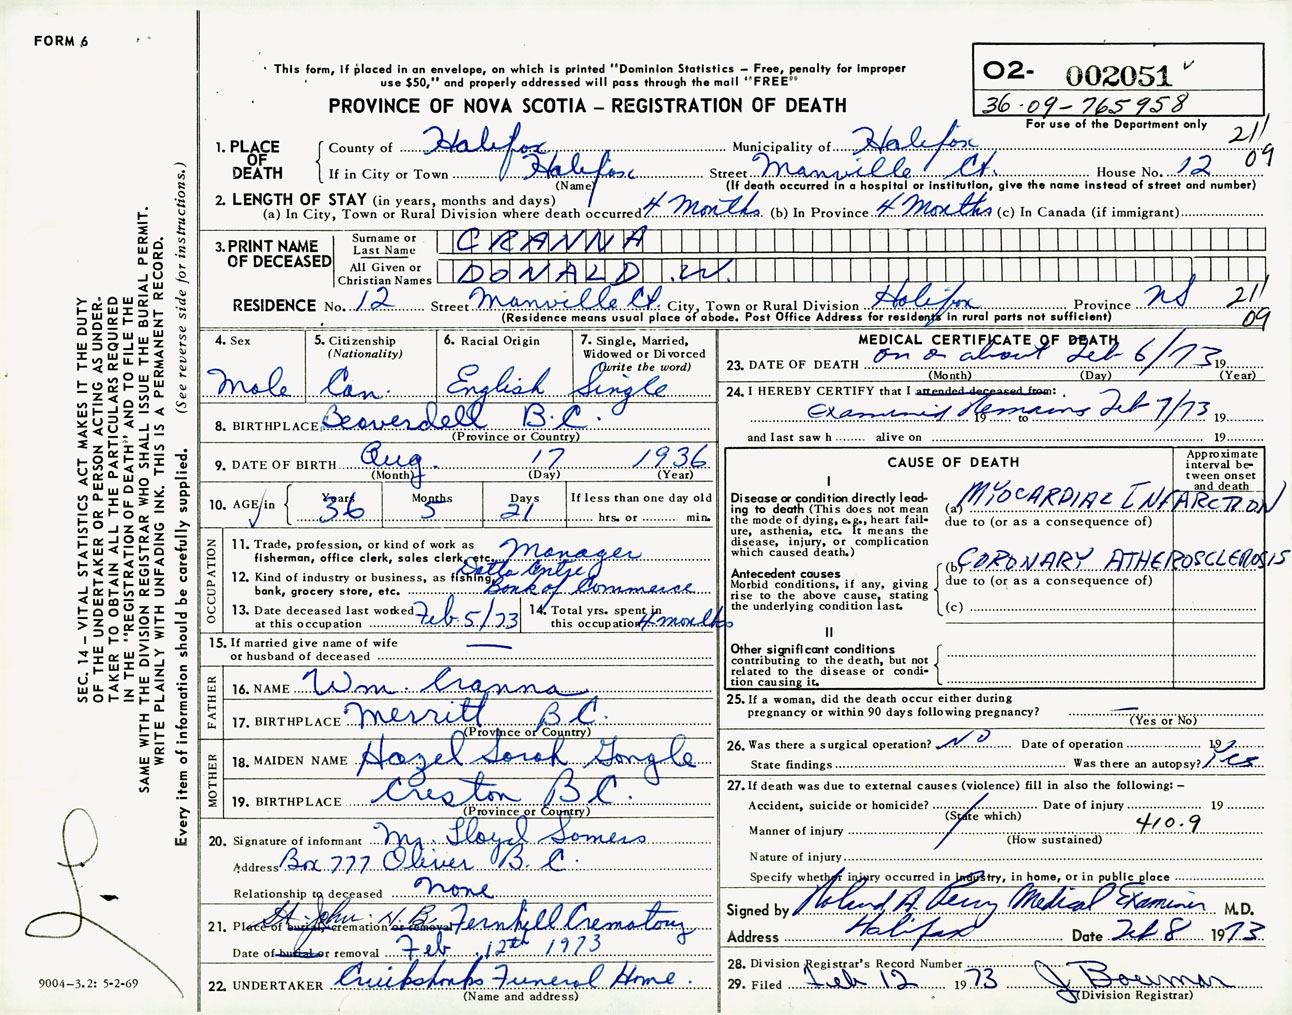 FORM 6
This form, if placed in an envelope, on which is printed "Dominion Statistics – Free, penalty for improper
use $50," and properly addressed will pass through the mail "FREE"
PROVINCE OF NOVA SCOTIA – REGISTRATION OF DEATH
02- 002051
36-09-765958
For use of the Department only
211
09
1. PLACE OF DEATH
County of Halifax Municipality of Halifax
If in City or Town Halifax Street Manville Ct. House No. 12
(Name) (If death occurred in a hospital or institution, give the name instead of street and number)
2. LENGTH OF STAY (in years, months and days)
(a) In City, Town or Rural Division where death occurred 4 Months (b) In Province 4 Months (c) In Canada (if immigrant)
3. PRINT NAME OF DECEASED
Surname or Last Name CRANNA
All Given or Christian Names DONALD .W.
RESIDENCE No. 12 Street Manville Ct. City, Town or Rural Division Halifax Province NS 211
(Residence means usual place of abode. Post Office Address for residents in rural parts not sufficient) 09
4. Sex
Male
5. Citizenship
(Nationality)
Can.
6. Racial Origin
English
7. Single, Married,
Widowed or Divorced
(write the word)
Single
8. BIRTHPLACE Beaverdell B.C.
(Province or Country)
9. DATE OF BIRTH Aug. 17 1936
(Month) (Day) (Year)
10. AGE in Years Months Days If less than one day old
36 5 21 hrs. or min.
OCCUPATION
11. Trade, profession, or kind of work as Manager
fisherman, office clerk, sales clerk, etc.
12. Kind of industry or business, as fishing,
bank, grocery store, etc. Bank of Commerce
13. Date deceased last worked
at this occupation Feb. 5/73
14. Total yrs. spent in
this occupation 4 months
15. If married give name of wife
or husband of deceased —
FATHER
16. NAME Wm. Cranna
17. BIRTHPLACE Merritt B.C.
(Province or Country)
MOTHER
18. MAIDEN NAME Hazel Sarah Gongle
19. BIRTHPLACE Creston B.C.
(Province or Country)
20. Signature of informant Mr. Lloyd Somers
Address Box 777 Oliver B.C.
Relationship to deceased None
St. John. N.B.
21. Place of burial, cremation or removal Fernhill Crematory
Date of burial or removal Feb. 12th 1973
22. UNDERTAKER Cruikshanks Funeral Home.
(Name and address)
MEDICAL CERTIFICATE OF DEATH
23. DATE OF DEATH on or about Feb 6/73 19
(Month) (Day) (Year)
24. I HEREBY CERTIFY that I attended deceased from:
Examined Remains Feb 7/73
19 to 19
and last saw h alive on 19
CAUSE OF DEATH
Approximate
interval be-
tween onset
and death
I
Disease or condition directly lead-
ing to death (This does not mean
the mode of dying, e.g., heart fail-
ure, asthenia, etc. It means the
disease, injury, or complication
which caused death.)
(a) MYOCARDIAL INFARCTION
due to (or as a consequence of)
Antecedent causes
Morbid conditions, if any, giving
rise to the above cause, stating
the underlying condition last.
(b) CORONARY ATHEROSCLEROSIS
due to (or as a consequence of)
(c)
II
Other significant conditions
contributing to the death, but not
related to the disease or condi-
tion causing it.
25. If a woman, did the death occur either during
pregnancy or within 90 days following pregnancy? —
(Yes or No)
26. Was there a surgical operation? NO Date of operation 19
State findings Was there an autopsy? Yes
27. If death was due to external causes (violence) fill in also the following: –
Accident, suicide or homicide? Date of injury 19
(State which)
Manner of injury 410.9
(How sustained)
Nature of injury
Specify whether injury occurred in industry, in home, or in public place
Signed by Roland A Perry Medical Examiner M.D.
Address Halifax Date Feb 8 1973
28. Division Registrar's Record Number
29. Filed Feb 12 1973 J Bowmar
(Division Registrar)
SEC. 14 – VITAL STATISTICS ACT MAKES IT THE DUTY
OF THE UNDERTAKER OR PERSON ACTING AS UNDER-
TAKER TO OBTAIN ALL THE PARTICULARS REQUIRED
IN THE "REGISTRATION OF DEATH" AND TO FILE THE
SAME WITH THE DIVISION REGISTRAR WHO SHALL ISSUE THE BURIAL PERMIT.
WRITE PLAINLY WITH UNFADING INK. THIS IS A PERMANENT RECORD.
Every item of information should be carefully supplied. (See reverse side for instructions.)
9004-3.2: 5-2-69